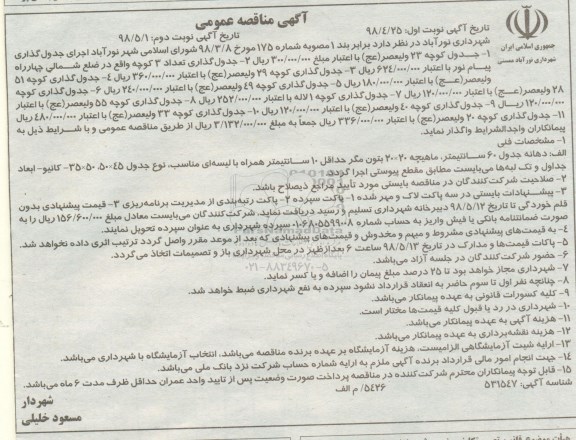 آگهی مناقصه عمومی
تاریخ آگهی نوبت اول: ۹۸/۴/۲۵
تاریخ آگهی نوبت دوم: ۹۸/۵/۱
جمهوری اسلامی ایران
شهرداری نورآباد ممسنی
شهرداری نورآباد در نظر دارد برابر بند ۱ مصوبه شماره ۱۷۵ مورخ ۹۸/۳/۸ شورای اسلامی شهر نورآباد اجرای جدول‌گذاری
۱- جدول کوچه ۲۳ ولیعصر(عج) با اعتبار مبلغ ۳۰۰/۰۰۰/۰۰۰ ریال ۲- جدول‌گذاری تعداد ۳ کوچه واقع در ضلع شمالی چهارراه
پیام نور با اعتبار ۶۲۴/۰۰۰/۰۰۰ ریال ۳- جدول‌گذاری کوچه ۲۹ ولیعصر(عج) با اعتبار ۳۶۰/۰۰۰/۰۰۰ ریال ۴- جدول‌گذاری کوچه ۵۱
ولیعصر(عج) با اعتبار ۱۸۰/۰۰۰/۰۰۰ ریال ۵- جدول‌گذاری کوچه ۴۹ ولیعصر(عج) با اعتبار ۲۴۰/۰۰۰/۰۰۰ ریال ۶- جدول‌گذاری کوچه
۲۸ ولیعصر(عج) با اعتبار ۱۲۰/۰۰۰/۰۰۰ ریال ۷- جدول‌گذاری کوچه ۱ لاله با اعتبار ۲۵۲/۰۰۰/۰۰۰ ریال ۸- جدول‌گذاری کوچه ۵۵ ولیعصر(عج) با اعتبار
۱۲۰/۰۰۰/۰۰۰ ریال ۹- جدول‌گذاری کوچه ۴۰ ولیعصر(عج) با اعتبار ۱۲۰/۰۰۰/۰۰۰ ریال ۱۰- جدول‌گذاری کوچه ۳۳ ولیعصر(عج) با اعتبار ۴۸۰/۰۰۰/۰۰۰ ریال
۱۱- جدول‌گذاری کوچه ۲۰ ولیعصر(عج) با اعتبار ۳۳۶/۰۰۰/۰۰۰ ریال جمعاً به مبلغ ۳/۱۳۲/۰۰۰/۰۰۰ ریال از طریق مناقصه عمومی و با شرایط ذیل به
پیمانکاران واجدالشرایط واگذار نماید.
۱- مشخصات فنی
الف: دهانه جدول ۶۰ سانتیمتر، ماهیچه ۲۰*۲۰ بتون مگر حداقل ۱۰ سانتیمتر همراه با لیسه‌ای مناسب، نوع جدول ۴۵*۵۰، ۵۰*۳۵ - کانیو- ابعاد
جداول و تک لبه‌ها می‌بایست مطابق مقطع پیوستی اجرا گردد.
۲- صلاحیت شرکت‌کنندگان در مناقصه بایستی مورد تأیید مراجع ذیصلاح باشد.
۳- پیشنهادات بایستی در سه پاکت لاک و مهر شده ۱- پاکت سپرده ۲- پاکت رتبه‌بندی از مدیریت برنامه‌ریزی ۳- قیمت پیشنهادی بدون
قلم خوردگی تا تاریخ ۹۸/۵/۱۲ دبیرخانه شهرداری تسلیم و رسید دریافت نمایند. شرکت‌کنندگان می‌بایست معادل مبلغ ۱۵۶/۶۰۰/۰۰۰ ریال را به
صورت ضمانتنامه بانکی یا فیش واریز به حساب شماره ۰۱۰۶۸۰۵۵۹۹۰۰۸ سپرده شهرداری به عنوان سپرده تحویل نمایند.
۴- به قیمت‌های پیشنهادی مشروط و مبهم و مخدوش و قیمت‌های پیشنهادی که بعد از موعد مقرر واصل گردد ترتیب اثری داده نخواهد شد.
۵- پاکات قیمت‌ها و مدارک در تاریخ ۹۸/۵/۱۳ ساعت ۶ بعدازظهر در محل شهرداری باز و تصمیمات اتخاذ می‌گردد.
۶- حضور شرکت‌کنندگان در جلسه آزاد می‌باشد.
۰۲۱-۸۸۳۴۹۶۷۰-۵
۷- شهرداری مجاز خواهد بود تا ۲۵ درصد مبلغ پیمان را اضافه و یا کسر نماید.
۸- چنانچه نفر اول تا سوم حاضر به انعقاد قرارداد نشود سپرده به نفع شهرداری ضبط خواهد شد.
۹- کلیه کسورات قانونی به عهده پیمانکار می‌باشد.
۱۰- شهرداری در رد یا قبول کلیه قیمت‌ها مختار است.
۱۱- هزینه آگهی به عهده پیمانکار می‌باشد.
۱۲- هزینه نقشه‌برداری به عهده پیمانکار می‌باشد.
۱۳- ارایه شیت آزمایشگاهی الزامیست. هزینه آزمایشگاه بر عهده برنده مناقصه می‌باشد. انتخاب آزمایشگاه با شهرداری می‌باشد.
۱۴- جهت انجام امور مالی قرارداد برنده آگهی ملزم به ارایه شماره حساب شرکت نزد بانک ملی می‌باشد.
۱۵- قابل توجه پیمانکاران محترم شرکت‌کننده در مناقصه پرداخت صورت وضعیت پس از تایید واحد عمران حداقل ظرف مدت ۶ ماه می‌باشد.
شناسه آگهی: ۵۳۱۵۴۷
۵۴۲۶/ م الف
شهردار
مسعود خلیلی